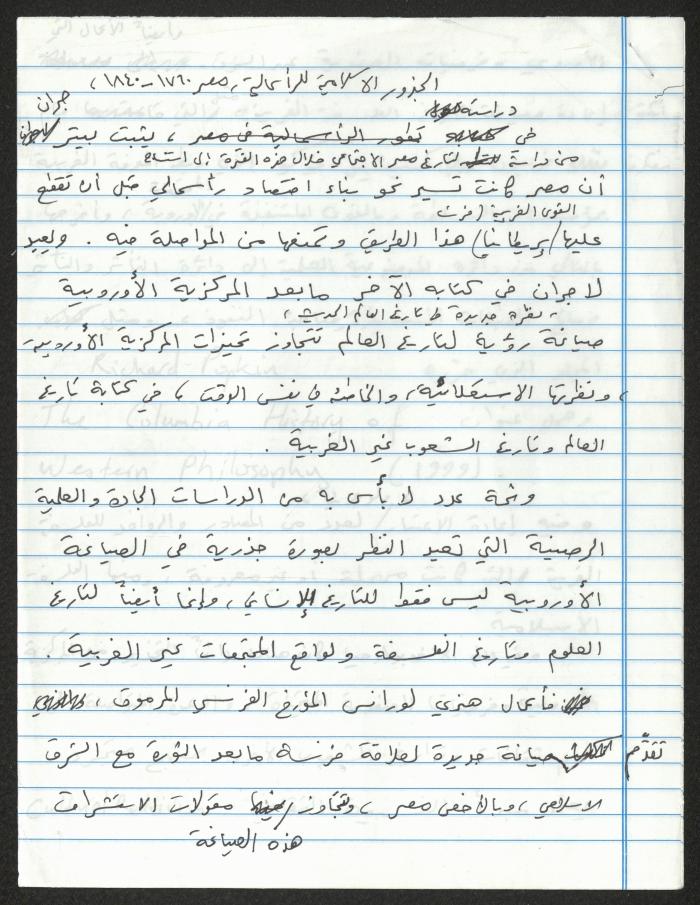 الجذور الاسلامية للرأسمالية، مصر ١٧٦٠-١٨٤٠،
دراسته
جران
في تطور الرأسمالية في مصر، يثبت بيتر
من دراسة لتاريخ مصر الاجتماعي خلال هذه الفترة إلى استنتاج
أن مصر كانت تسير نحو بناء اقتصاد رأسمالي قبل أن تقطع
القوى الغربية (فرنسا
عليها/بريطانيا) هذا الطريق وتمنعها من المواصلة فيه. ويعيد
لاجران في كتابه الآخر ما بعد المركزية الأوروبية
، نظرة جديدة في تاريخ العالم الحديث،
صياغة رؤية لتاريخ العالم تتجاوز تحيزات المركزية الأوروبية
، ونظرتها الاستعلائية، والخاطئة في نفس الوقت، في كتابة تاريخ
العالم وتاريخ الشعوب غير الغربية.
وثمة عدد لا بأس به من الدراسات الجادة والعلمية
الرصينة التي تعيد النظر بصورة جذرية في الصياغة
الأوروبية ليس فقط للتاريخ الإنساني، وإنما أيضاً لتاريخ
العلوم وتاريخ الفلسفة ولواقع المجتمعات غير الغربية.
فأعمال هنري لورانس المؤرخ الفرنسي المرموق،
تقدّم صياغة جديدة لعلاقة فرنسا ما بعد الثورة مع الشرق
الاسلامي، وبالأخص مصر، وتتجاوز مقولات الاستشراق
هذه الصياغة